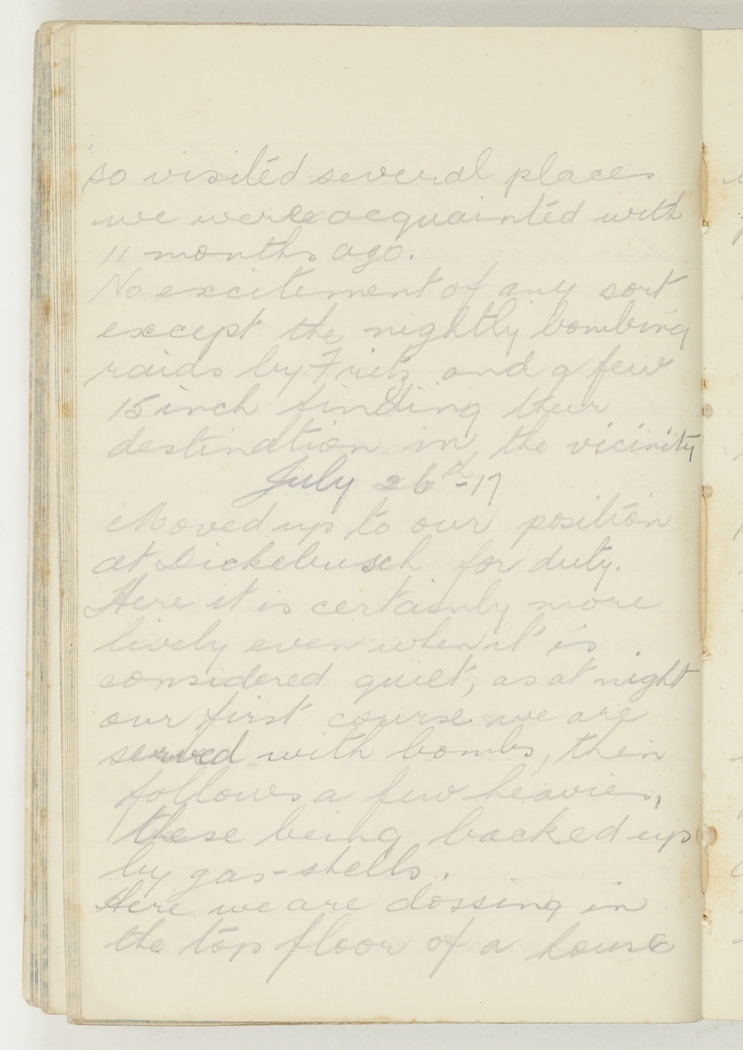 so visited several places
we were acquainted with
11 months ago.
No excitement of any sort
except the nightly bombing
raids by Fritz and a few
15 inch finding their
destination in the vicinity
July 26th-17
Moved up to our position
at Dickebusch for duty.
Here it is certainly more
lively even when it is
considered quiet, as at night
our first course we are
served with bombs, then
follows a few heavies,
these being backed up
by gas-shells.
Here we are dossing in
the top floor of a house